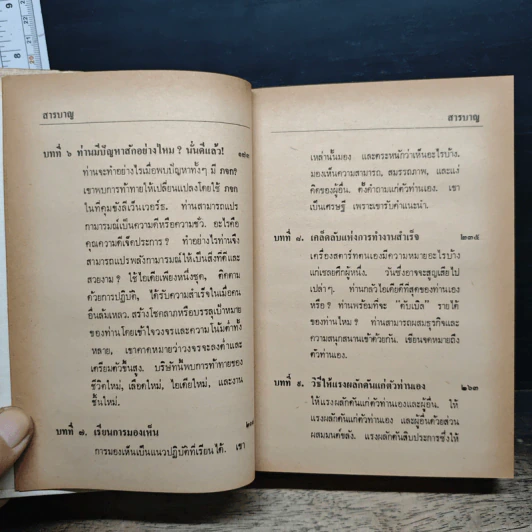 สารบาญ
บทที่ ๖ ท่านมีปัญหาสักอย่างไหม ? นั่นดีแล้ว!
ท่านจะทำอย่างไรเมื่อพบปัญหาทั้งๆ มี กจก?
เขาพบการท้าทายให้เปลี่ยนแปลงโดยใช้ กจก
ในที่คุมขังลีเว็นเวอร์ธ. ท่านสามารถแปร
กามารมณ์เป็นความดีหรือความชั่ว. อะไรคือ
คุณความดีเจ็ดประการ ? ทำอย่างไรท่านจึง
สามารถแปรพลังกามารมณ์ให้เป็นสิ่งที่ดีและ
สวยงาม ? ใช้ไอเดียเพียงหนึ่งชุด, ติดตาม
ด้วยการปฏิบัติ, ได้รับความสำเร็จในเมื่อคน
อื่นล้มเหลว. สร้างโชคลาภหรือบรรลุเป้าหมาย
ของท่านโดยเข้าใจวงจรและความโน้มต่ำทั้ง
หลาย, เขาคาดหมายว่าวงจรจะลงต่ำและ
เตรียมตัวขึ้นสูง. บริษัทนี้พบการท้าทายของ
ชีวิตใหม่, เลือดใหม่, ไอเดียใหม่, และงาน
ชิ้นใหม่.
บทที่ ๗. เรียนการมองเห็น
การมองเห็นเป็นแนวปฏิบัติที่เรียนได้. เขา
สารบาญ
เหล่านั้นมอง และตระหนักว่าเห็นอะไรบ้าง.
มองเห็นความสามารถ, สมรรถภาพ, และแง่
คิดของผู้อื่น. ตั้งคำถามแก่ตัวท่านเอง. เขา
เป็นเศรษฐี เพราะเขารับคำแนะนำ.
บทที่ ๘. เคล็ดลับแห่งการทำงานสำเร็จ ๒๓๕
เครื่องสตาร์ทตนเองมีความหมายอะไรบ้าง
แก่เธอยศึกผู้หนึ่ง. วันซึ่งอาจจะสูญเสียไป
เปล่าๆ. ท่านกลัวไอเดียดีที่สุดของท่านเอง
หรือ ? ท่านพร้อมที่จะ "ดับเบิล" รายได้
ของท่านไหม ? ท่านสามารถผสมธุรกิจและ
ความสนุกสนานเข้าด้วยกัน. เขียนจดหมายถึง
ตัวท่านเอง.
บทที่ ๙. วิธีให้แรงผลักดันแก่ตัวท่านเอง ๒๖๓
ให้แรงผลักดันแก่ท่านเองและผู้อื่น. ให้
แรงผลักดันแก่ตัวท่านเอง และผู้อื่นด้วยส่วน
ผสมมนต์ขลัง. แรงผลักดันสิบประการซึ่งให้